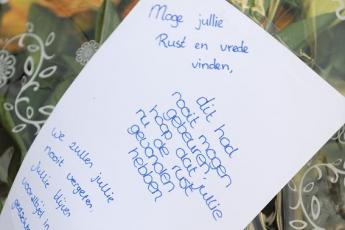 Moge jullie
Rust en vrede
vinden,
dit had
nooit mogen
gebeuren,
hoop dat jullie
nu de rust
gevonden
hebben
we zullen jullie
nooit vergeten,
jullie blijven
voor altijd in